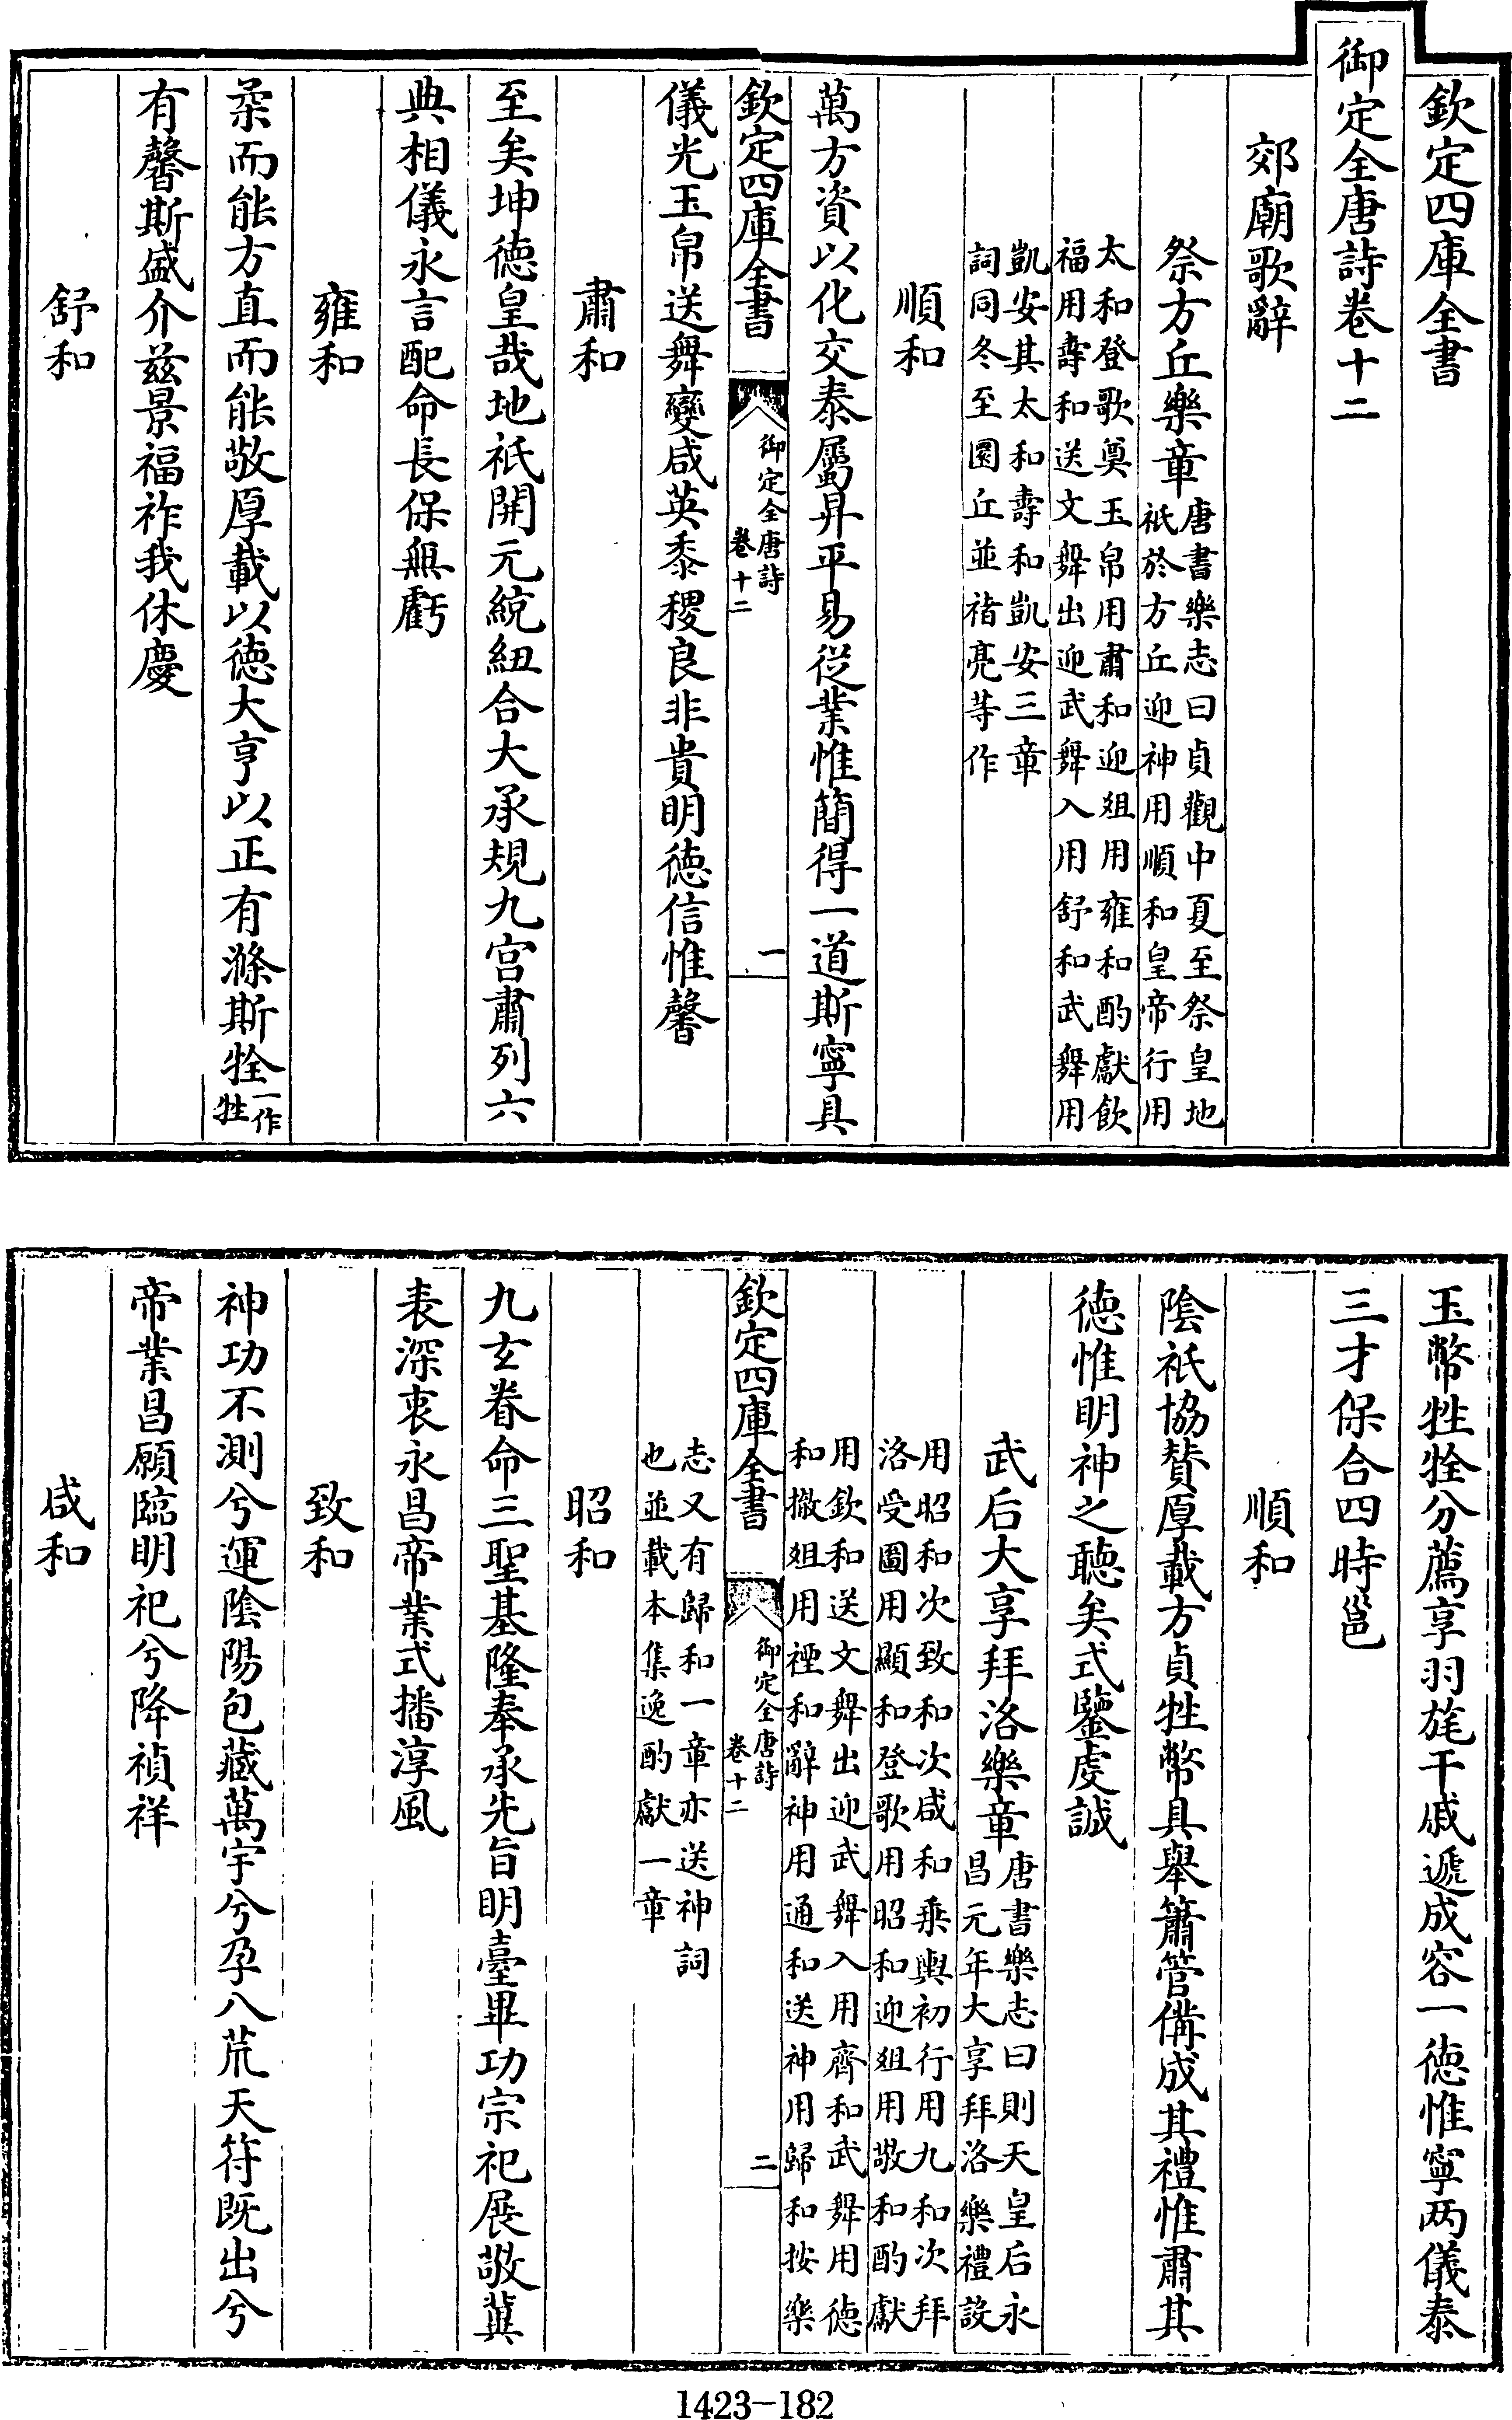 欽定四庫全書
御定全唐詩卷十二
郊廟歌辭
祭方丘樂章唐書樂志曰貞觀中夏至祭皇地
祇於方丘迎神用順和皇帝行用
太和登歌奠玉帛用肅和迎俎用雍和酌獻飲
福用壽和送文舞出迎武舞入用舒和武舞用
凱安其太和壽和凱安三章
詞同冬至圜丘並褚亮等作
順和
萬方資以化交泰屬昇平易從業惟簡得一道斯寧具
欽定四庫全書
御定全唐詩
卷十二
一
儀光玉帛送舞變咸英黍稷良非貴明德信惟馨
肅和
至矣坤德皇哉地祇開元統紐合大承規九宮肅列六
典相儀永言配命長保無虧
雍和
柔而能方直而能敬厚載以德大亨以正有滌斯牷一作
牲
有馨斯盛介茲景福祚我休慶
舒和
玉幣牲牷分薦享羽旄干戚遞成容一德惟寧兩儀泰
三才保合四時邕
順和
陰祇協贊厚載方貞牲幣具舉簫管備成其禮惟肅其
德惟明神之聽矣式鑒虔誠
武后大享拜洛樂章唐書樂志曰則天皇后永
昌元年大享拜洛樂禮設
用昭和次致和次咸和乘輿初行用九和次拜
洛受圖用顯和登歌用昭和迎俎用敬和酌獻
用欽和送文舞出迎武舞入用齊和武舞用德
和撤俎用禋和辭神用通和送神用歸和按樂
欽定四庫全書
御定全唐詩
卷十二
二
志又有歸和一章亦送神詞
也並載本集逸酌獻一章
昭和
九玄眷命三聖基隆奉承先旨明臺畢功宗祀展敬冀
表深衷永昌帝業式播淳風
致和
神功不測兮運陰陽包藏萬宇兮孕八荒天符既出兮
帝業昌願臨明祀兮降禎祥
咸和
1423-182